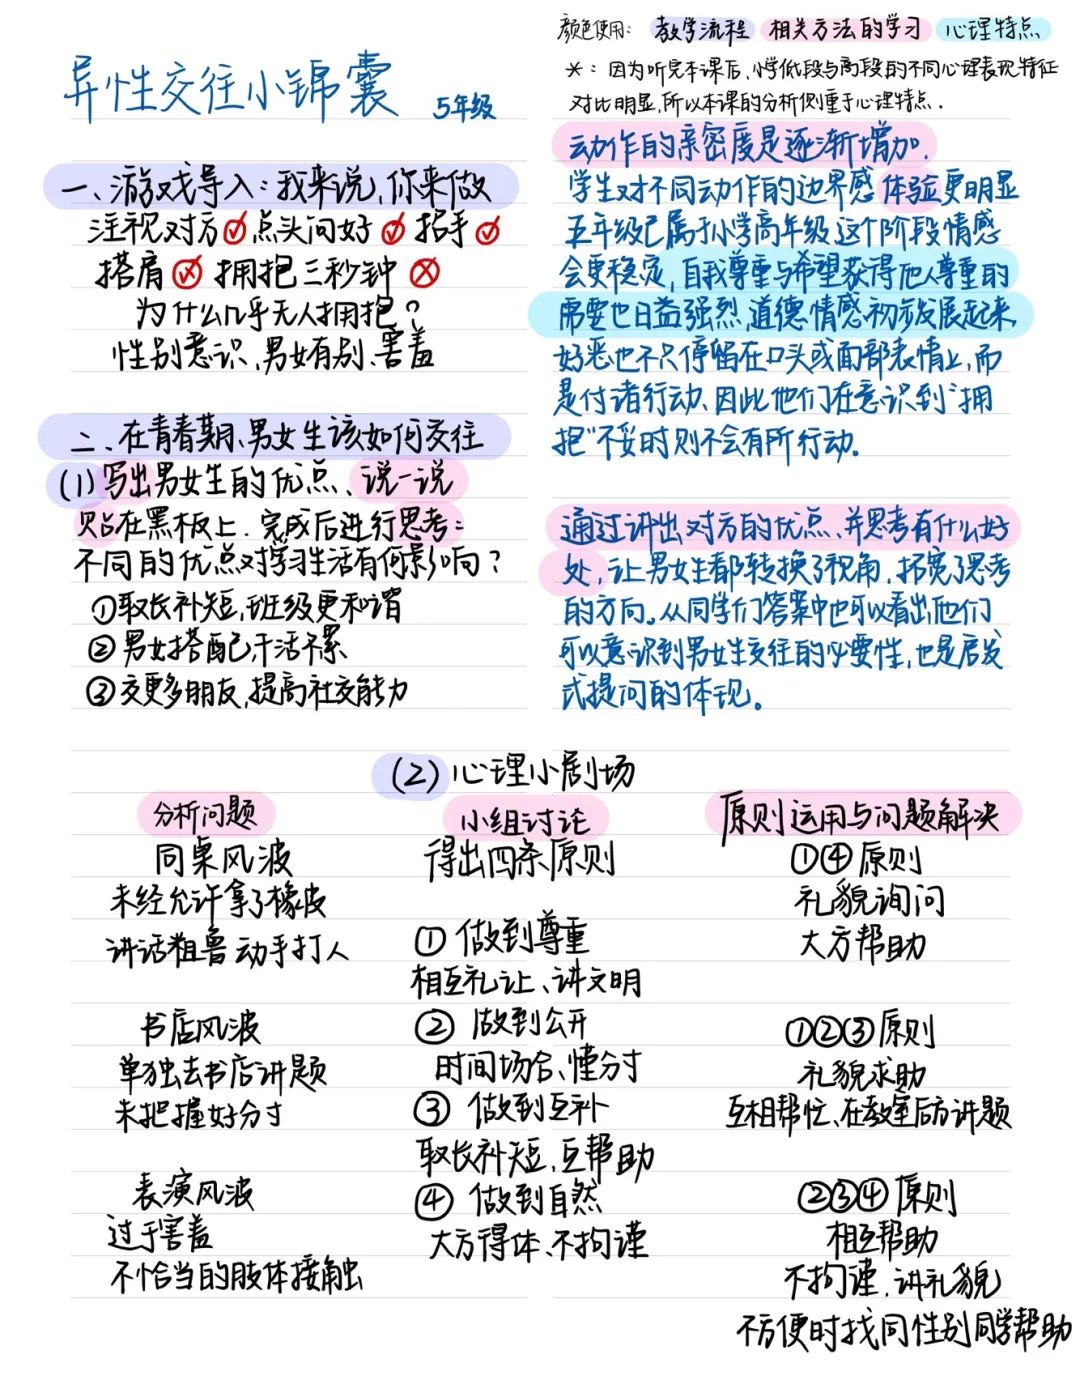 颜色使用: 教学流程 相关方法的学习 心理特点
*: 因为听完本课后、小学低段与高段的不同心理表现特征
对比明显,所以本课的分析侧重于心理特点.
异性交往小锦囊 5年级
一、游戏导入:我来说,你来做
注视对方 点头问好 招手
搭肩 拥抱三秒钟
为什么几乎无人拥抱?
性别意识、男女有别、害羞
动作的亲密度是逐渐增加.
学生对不同动作的边界感体验更明显
五年级已属于小学高年级这个阶段情感
会更稳定,自我尊重与希望获得他人尊重的
需要也日益强烈,道德情感初步发展起来,
好恶也不只停留在口头或面部表情上,而
是付诸行动、因此他们在意识到“拥
抱”不妥时则不会有所行动。
二、在青春期、男女生该如何交往
(1)写出男女生的优点、说一说
贴在黑板上.完成后进行思考:
不同的优点对学习生活有何影响?
①取长补短,班级更和谐
②男女搭配干活不累
③交更多朋友,提高社交能力
通过讲出对方的优点、并思考有什么好
处,让男女生都转换了视角,拓宽了思考
的方向。从同学们答案中也可以看出他们
可以意识到男女生交往的必要性,也是启发
式提问的体现。
(2)心理小剧场
分析问题
同桌风波
未经允许拿了橡皮
讲话粗鲁动手打人
书店风波
单独去书店讲题
未把握好分寸
表演风波
过于害羞
不恰当的肢体接触
小组讨论
得出四条原则
① 做到尊重
相互礼让、讲文明
② 做到公开
时间场合、懂分寸
③ 做到互补
取长补短,互帮助
④ 做到自然
大方得体、不拘谨
原则运用与问题解决
①④原则
礼貌询问
大方帮助
①②③原则
礼貌求助
互相帮忙、在教室后方讲题
②③④原则
相互帮助
不拘谨.讲礼貌
不方便时找同性别同学帮助